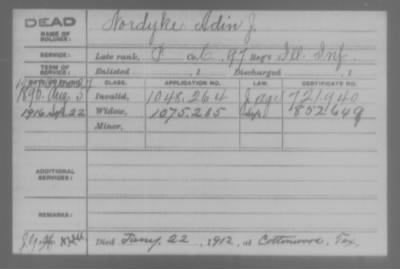 DEAD
NAME OF SOLDIER: Nordyke Adin J.
SERVICE: Late rank, P Co. C, 97 Reg't Ill. Inf.
TERM OF SERVICE: Enlisted , 1 Discharged , 1
DATE OF FILING. CLASS. APPLICATION NO. LAW. CERTIFICATE NO.
1890 Aug. 5 Invalid, 1048.264 721940
1916 Sep. 22 Widow, 1075.265 852649
Minor,
ADDITIONAL SERVICES:
REMARKS:
Died Jany. 22, 1912, at Cottonwood, Tex.